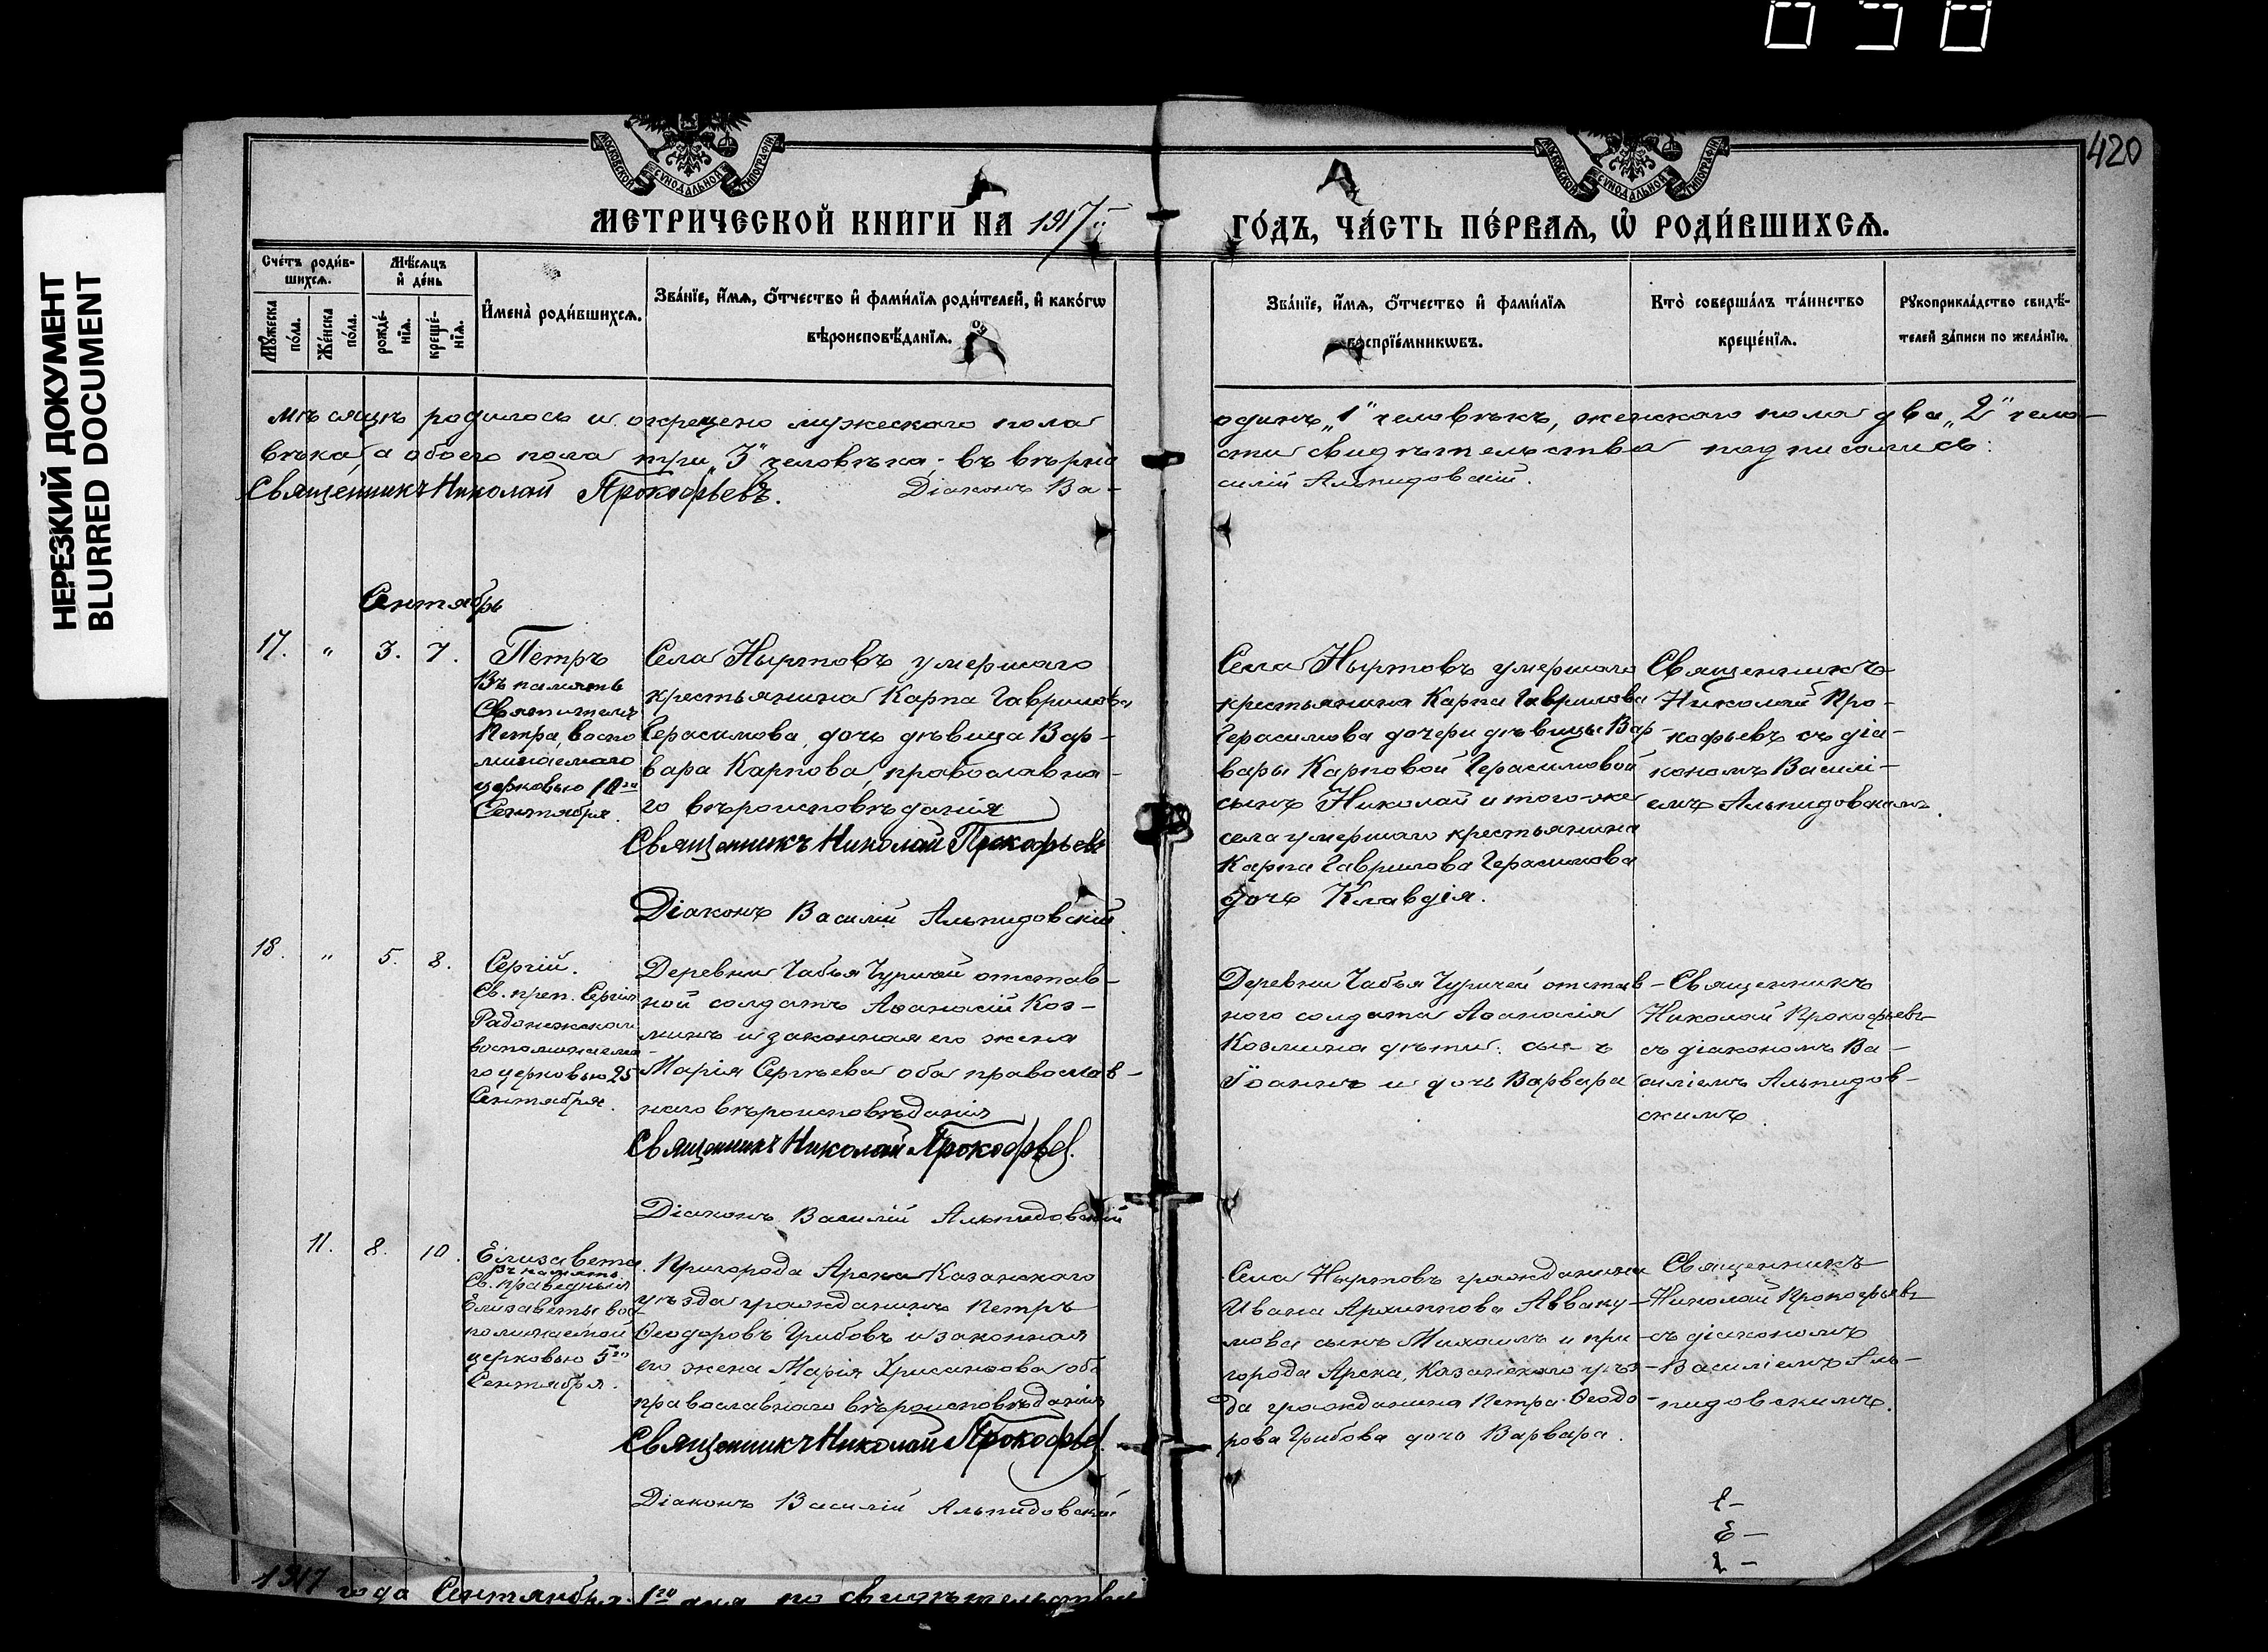 НЕРЕЗКИЙ ДОКУМЕНТ
BLURRED DOCUMENT
420
МОСКОВСКОЙ СѴНОДАЛЬНОЙ ТИПОГРАФІИ
МОСКОВСКОЙ СѴНОДАЛЬНОЙ ТИПОГРАФІИ
МЕТРИЧЕСКОЙ КНИГИ НА 1917й
ГО́ДЪ, ЧА́СТЬ ПЕ́РВАѦ, Ѽ РОДИ́ВШИХСѦ.
Сче́тъ роди́в-
шихсѧ.
Мѣ́сѧцъ
и҆ де́нь
Мꙋжеска
по́ла.
Же́нска
по́ла.
рожде́-
нїѧ.
креще́-
нїѧ.
И҆мена̀ роди́вшихсѧ.
Зва́нїе, и҆́мѧ, ѻ҆́тчество и҆ фами́лїѧ роди́телей, и҆ како́гѡ
вѣроисповѣ́данїѧ.
Зва́нїе, и҆́мѧ, ѻ҆́тчество и҆ фами́лїѧ
воспрїе́мникѡвъ.
Кто̀ соверша́лъ та́инство
креще́нїѧ.
Рꙋкоприкла́дство свидѣ́-
телей за́писи по жела́нїю.
мѣсяцъ родилось и окрещено мужескаго пола
вѣка, а обоего пола три „3" человѣка; въ вѣрно
Священникъ Николай Прокофьевъ. Діаконъ Ва-
одинъ „1" человѣкъ, женскаго пола два „2" чело-
сти свидѣтельства подписались:
силій Альпидовскій.
Сентябрь
17. " 3. 7.
Петръ
Въ память
Святителя
Петра, воспо
минаемаго
церковью 10го
Сентября.
Села Ныртовъ умершаго
крестьянина Карпа Гаврилова
Герасимова, дочь дѣвица Вар-
вара Карпова, православна-
го вѣроисповѣданія
Священникъ Николай Прокофьевъ
Діаконъ Василій Альпидовскій.
Села Ныртовъ умершаго
крестьянина Карпа Гаврилова
Герасимова дочери дѣвицы Вар-
вары Карповой Герасимовой
сынъ Николай и того-же
села умершаго крестьянина
Карпа Гаврилова Герасимова
дочь Клавдія.
Священникъ
Николай Про-
кофьевъ съ діа-
кономъ Василі-
емъ Альпидовскимъ.
18. " 5. 8.
Сергій.
Св. преп. Сергія
Радонежскаго
воспоминаема-
го церковью 25
Сентября.
Деревни Чабья Чурчей отстав-
ной солдатъ Аѳанасій Коз-
минъ и законная его жена
Марія Сергѣева оба православ-
наго вѣроисповѣданія
Священникъ Николай Прокофьев.
Діаконъ Василій Альпидовскій
Деревни Чабья Чурчей отстав-
ного солдата Аѳанасія
Козмина дѣти: сынъ
Іоаннъ и дочь Варвара
Священникъ
Николай Прокофьевъ
съ діакономъ Ва-
силіемъ Альпидов-
скимъ
11. 8. 10.
Елизавета.
Въ память
Св. праведныя
Елизаветы вос-
поминаемой
церковью 5го
Сентября.
Пригорода Арска Казанскаго
уѣзда гражданинъ Петръ
Ѳеодоровъ Грибовъ и законная
его жена Марія Хрисанѳова оба
православнаго вѣроисповѣданія
Священникъ Николай Прокофьев.
Діаконъ Василій Альпидовскій
Села Ныртовъ гражданина
Ивана Архиппова Авваку-
мова сынъ Михаилъ и при-
города Арска, Казанскаго уѣз-
да гражданина Петра Ѳеодо-
рова Грибова дочь Варвара.
Священникъ
Николай Прокофьевъ
съ діакономъ
Василіемъ Аль-
пидовскимъ.
1917 года Сентября 1го дня по свидѣтельству